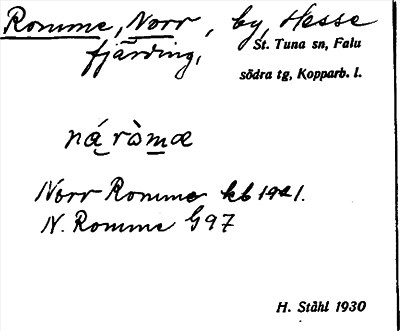 Romme, Norr, by, Hesse
fjärding,
St. Tuna sn, Falu
södra tg, Kopparb. l.
ná̱ ròm̱æ
Norr Romme kb 1921.
N. Romme G97
H. Ståhl 1930